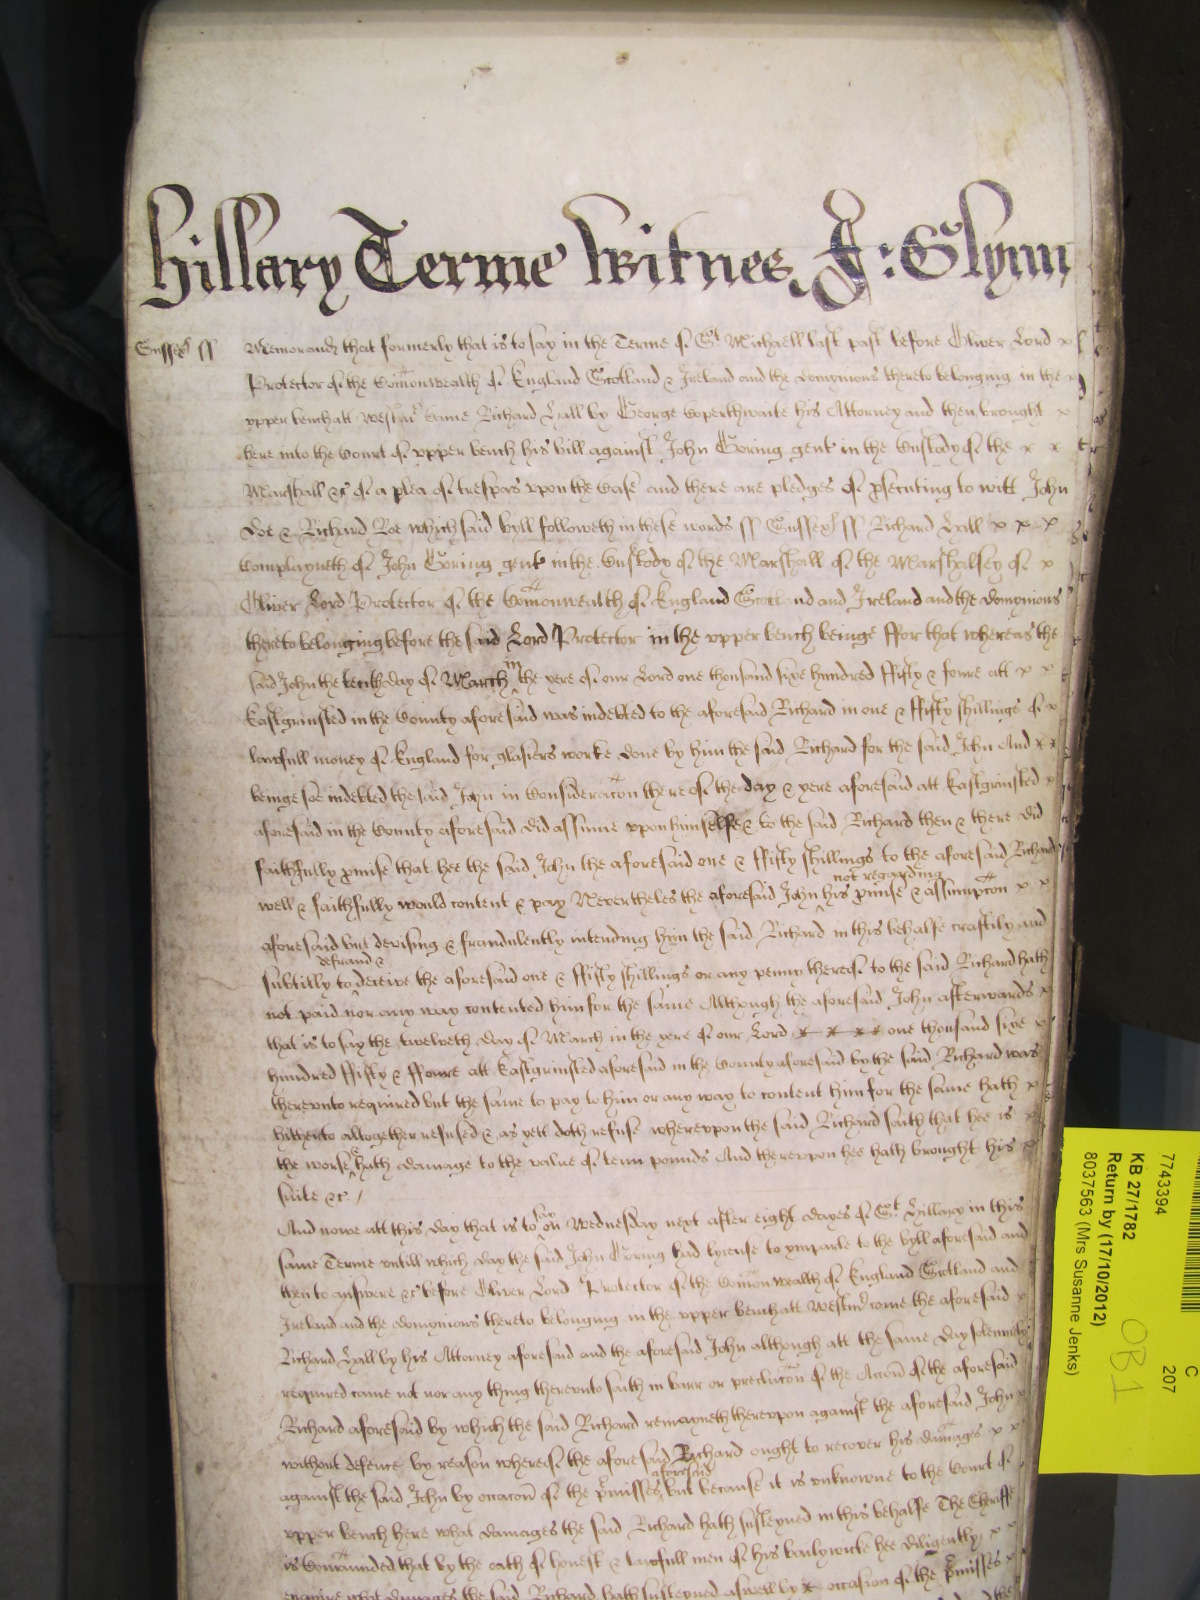 Hillary Terme Witnes J: Glynn
Sussex ss Memorand that formerly that is to say in the Terme of St Michaell last past before Oliver Lord x
Protector of the Comonwealth of England Scotland & Ireland and the domynions thereto belonging in the
upper bench att Westmr came Richard Hall by George Coperthwaite his Attorney and then brought x
here into the Court of upper bench his bill against John Goring gent in the Custody of the x x
Marshall &c of a plea of trespas upon the Case and there are pledges of psecuting to witt John
Doe & Richard Roe which said byll followeth in these words ss Sussex ss Richard Hall x x x
Complayneth of John Goring gent in the Custody of the Marshall of the Marshalsey of x
Oliver Lord Protector of the Comonwealth of England Scotland and Ireland and the domynions
thereto belonging before the said Lord Protector in the upper bench beinge ffor that whereas the
said John the tenth day of March in the yere of our Lord one thousand sixe hundred ffifty & foure att x x
Eastgrinsted in the County aforesaid was indebted to the aforesaid Richard in one & ffifty shillings of x
lawfull money of England for glasiers worke done by him the said Richard for the said John And x x
beinge soe indebted the said John in Consideracon thereof the day & yere aforesaid att Eastgrinsted x
aforesaid in the County aforesaid did assume upon himselfe & to the said Richard then & there did
faithfully pmise that hee the said John the aforesaid one & ffifty shillings to the aforesaid Richard
well & faithfully would content & pay Nevertheles the aforesaid John not regarding his pmise & assumpcon x x
aforesaid but devising & fraudulently intending him the said Richard in this behalfe craftily and
subtilly to defraud & deceive the aforesaid one & ffifty shillings or any penny thereof to the said Richard hath
not paid nor any way contented him for the same Although the aforesaid John afterwards x
that is to say the twelveth day of March in the yere of our Lord x x x x one thousand sixe x
hundred ffifty & ffoure att Eastgrinsted aforesaid in the County aforesaid by the said Richard was
thereunto required but the same to pay to him or any way to content him for the same hath x
hitherto altogether refused & as yett doth refuse whereupon the said Richard saith that hee is x
the worse & hath damage to the value of tenn pounds And thereupon hee hath brought his x
suite &c /
And nowe att this day that is to say on Wednesday next after eight dayes of St Hillary in this
same Terme untill which day the said John Goring had lycense to ymparle to the byll aforesaid and
then to answere &c before Oliver Lord Protector of the Comonwealth of England Scotland and
Ireland and the domynions thereto belonging in the upper bench att Westmr came the aforesaid x
Richard Hall by his Attorney aforesaid and the aforesaid John although att the same day solemnly
required came not nor any thing thereunto saith in barr or preclucon of the Accon of the aforesaid
Richard aforesaid by which the said Richard remayneth thereupon against the aforesaid John
without defence by reason whereof the aforesaid Richard ought to recover his damages x x
against the said John by occacon of the pmisses aforesaid but because it is unknowne to the Court of
upper bench here what damages the said Richard hath susteyned in this behalfe The Sheriffe
is Comaunded that by the oath of honest & lawfull men of his bailywicke hee diligently x x
enquire what damages the said Richard hath susteyned aswell by x occasion of the pmisses x
7743394
KB 27/1782
Return by (17/10/2012)
8037563 (Mrs Susanne Jenks)
C
207
OB1